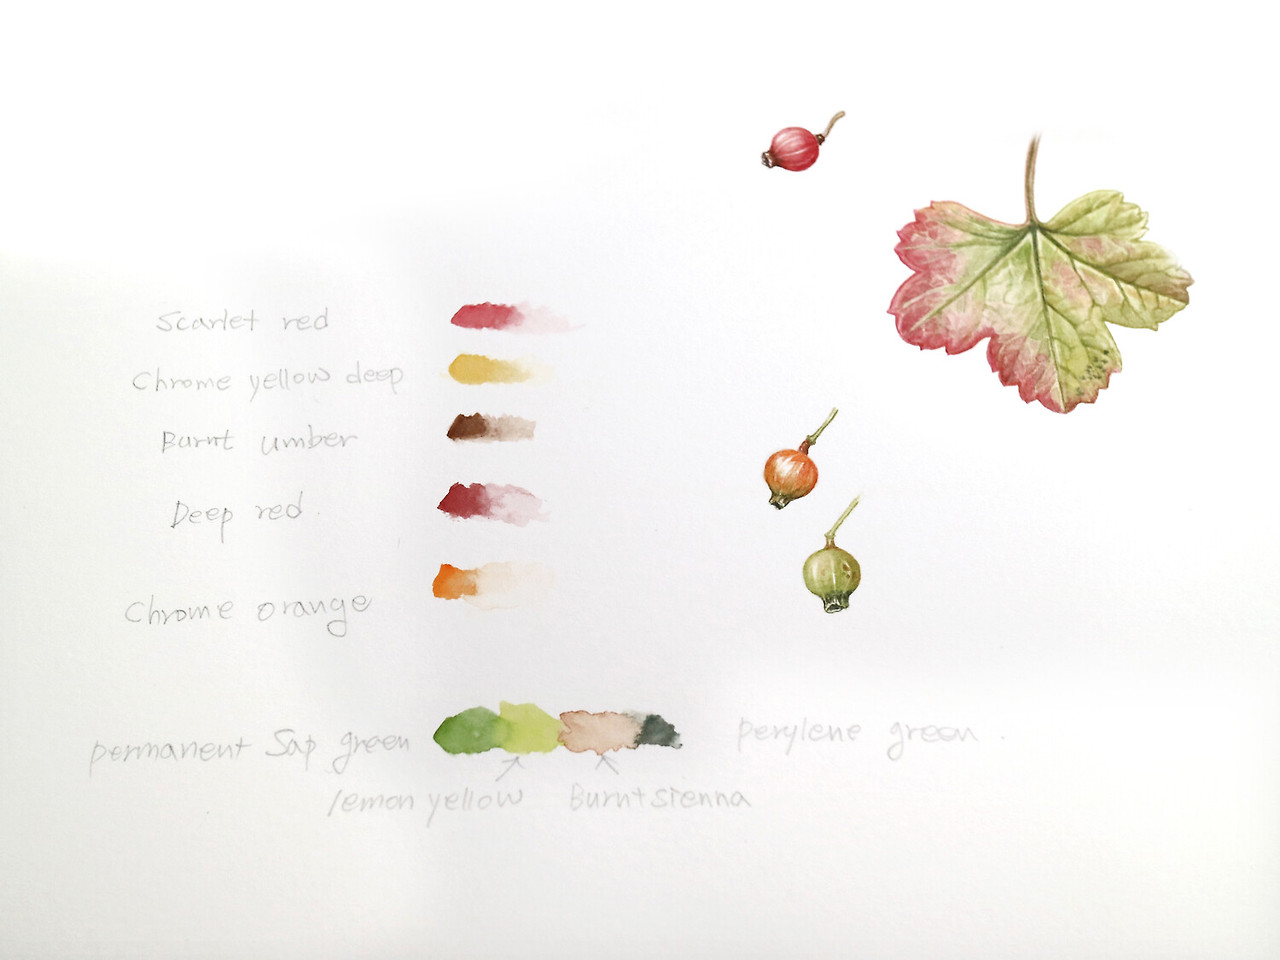 Scarlet red
Chrome yellow deep
Burnt umber
Deep red
Chrome orange
permanent Sap green
perylene green
lemon yellow
Burnt sienna